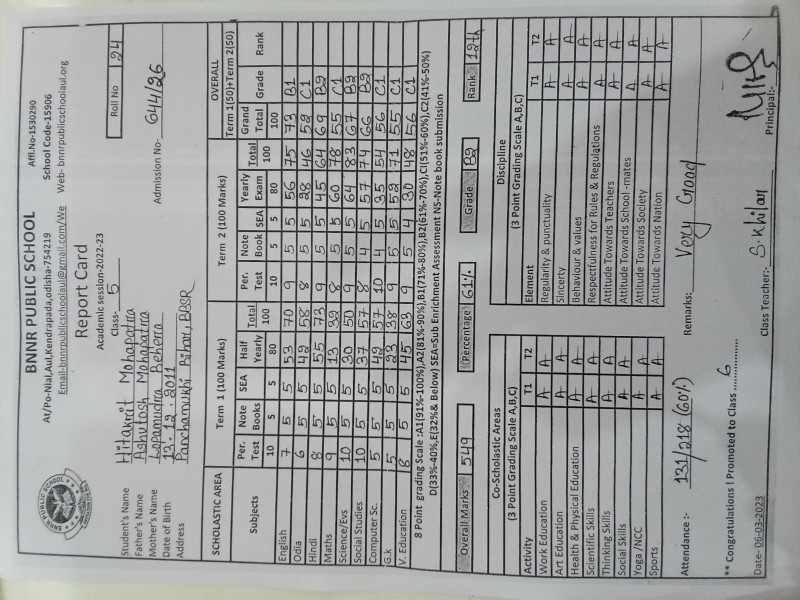 BNNR PUBLIC SCHOOL
Affl.No-1530290
At/Po-Nial,Aul,Kendrapada,odisha-754219 School Code-15906
Email-bnnrpublicschoolaul@gmail.com/We Web- bnnrpublicschoolaul.org
Report Card
Academic session-2022-23
Class- 5
Roll No 24
Student's Name Hitakrit Mohapatra
Admission No- 644/26
Father's Name Ashutosh Mohapatra
Mother's Name Lopamudra Behera
Date of Birth 13.12.2011
Address Panchamukhi Bihar, BBSR
SCHOLASTIC AREA Term 1 (100 Marks) Term 2 (100 Marks) OVERALL
Term 1(50)+Term 2(50)
Subjects Per. Test Note Books SEA Half Yearly Total Per. Test Note Book SEA Yearly Exam Total Grand Total Grade Rank
10 5 5 80 100 10 5 5 80 100 100
English 7 5 5 53 70 9 5 5 56 75 73 B1
Odia 6 5 5 42 58 8 5 5 28 46 52 C1
Hindi 8 5 5 55 73 9 5 5 45 64 69 B2
Maths 9 5 5 13 32 8 5 5 60 78 55 C1
Science/Evs 10 5 5 30 50 9 5 5 64 83 67 B2
Social Studies 10 5 5 37 57 8 4 5 57 74 66 B2
Computer Sc. 5 5 5 42 57 10 4 5 35 54 56 C1
G.k 5 5 5 23 38 9 5 5 52 71 55 C1
V. Education 8 5 5 45 63 9 5 4 30 48 56 C1
8 Point grading Scale :A1(91%-100%),A2(81%-90%),B1(71%-80%),B2(61%-70%),CI(51%-60%),C2(41%-50%)
D(33%-40%,E(32%& Below) SEA=Sub Enrichment Assessment NS-Note book submission
Overall Marks 549 Percentage 61% Grade B2 Rank 12th
Co-Scholastic Areas
(3 Point Grading Scale A,B,C)
Activity T1 T2
Work Education A A
Art Education A A
Health & Physical Education A A
Scientific Skills A A
Thinking Skills A A
Social Skills A A
Yoga /NCC A A
Sports A A
Discipline
(3 Point Grading Scale A,B,C)
Element T1 T2
Regularity & punctuality A A
Sincerty A A
Behaviour & values A A
Respectfulness for Rules & Regulations A A
Attitude Towards Teachers A A
Attitude Towards School -mates A A
Attitude Towards Society A A
Attitude Towards Nation A A
Attendance :- 131/218 (60%) Remarks:- Very Good
** Congratulations ! Promoted to Class 6
Date- 06-03-2023 Class Teacher:- S. Khilar Principal:-